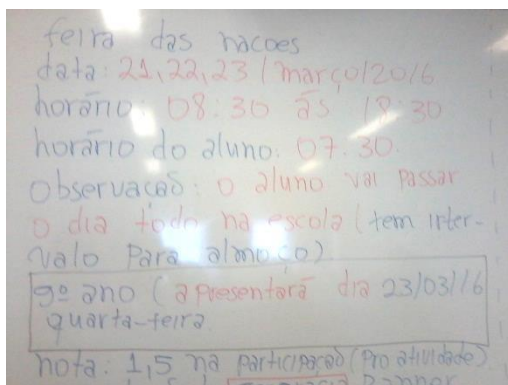 feira das nacoes
data: 21,22,23/março/2016
horário: 08:30 ás 18:30
horário do aluno: 07:30.
Observação: o aluno vai passar
o dia todo na escola (tem inter-
valo para almoço)
9º ano (apresentará dia 23/03/16
quarta-feira
nota: 1,5 na participação (pro atividade)